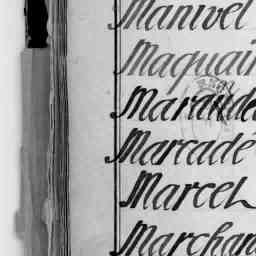 Manivel
Maquair
Marande
Marcadé
Marcel
Marchan